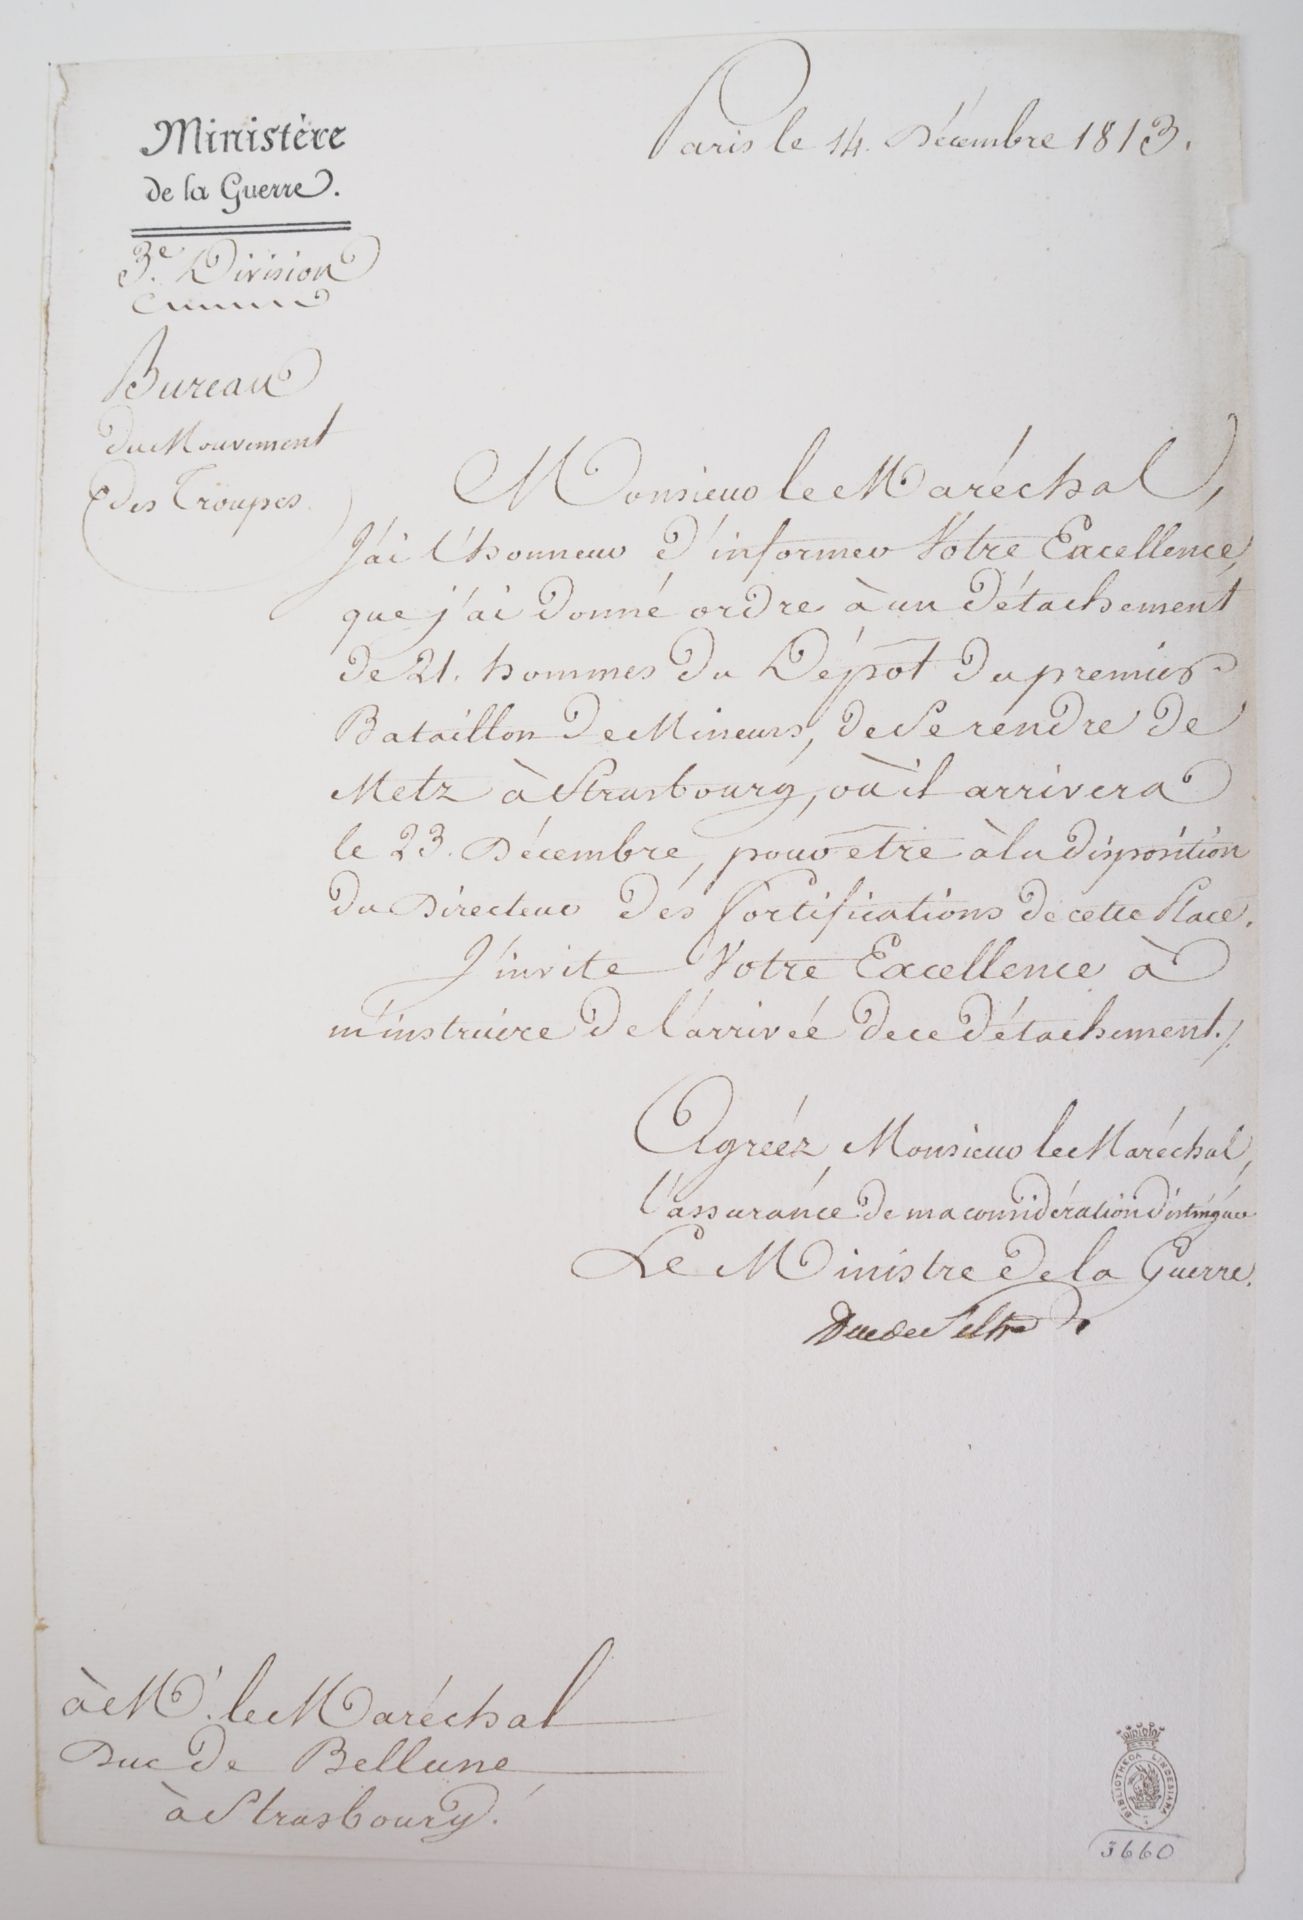 Paris le 14. Décembre 1813.
Ministère
de la Guerre.
3e. Division
Bureau
du Mouvement
des Troupes.
Monsieur le Maréchal,
J'ai l'honneur d'informer Votre Excellence,
que j'ai donné ordre à un détachement
de 21. hommes du Dépôt du premier
Bataillon de Mineurs, de se rendre de
Metz à Strasbourg, où il arrivera
le 23. Décembre, pour être à la disposition
du Directeur des fortifications de cette Place.
J'invite Votre Excellence à
m'instruire de l'arrivée de ce détachement./.
Agréez, Monsieur le Maréchal,
l'assurance de ma considération distinguée
Le Ministre de la Guerre.
Duc de Feltre
à Mr. le Maréchal
Duc de Bellune
à Strasbourg.
BIBLIOTHECA LINDESIANA
3660